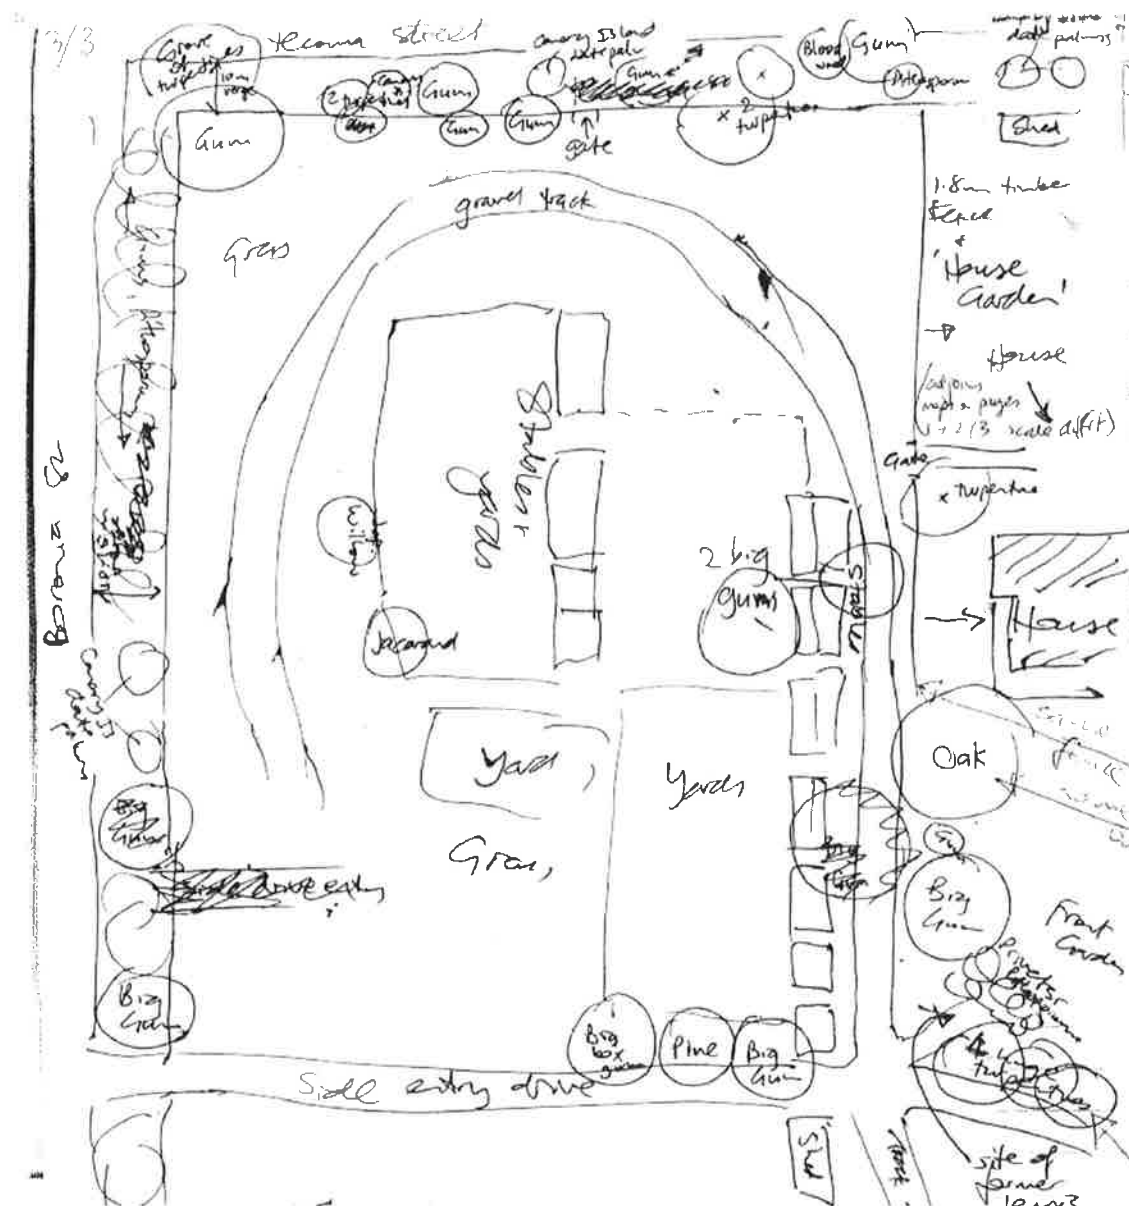 3/3
tecoma street
Grove
of
turpentines
10m
verge
Gum
2
Canary
Gum
Gum
Gum
Canary Island
date palm
Gum
gate
x
x 2
turpentines
Blood
wood
Gum
Pittosporum
date palms
Shed
1.8m timber
fence
&
'House
Garden'
House
adjoins
maps on pages
1 + 2/3 scale diff't)
Gate
x turpentine
House
gravel track
Grass
Stables +
yards
Willow
Jacarand
2 big
gums
Stables
Gums, Pittosporum
Boronia St
Canary Is
date
palm
Big
Gum
Side drive entry
Big
Gum
Yard
Yards
Grass
Oak
fence
Big
Gum
Gum
Big
Gum
Front
Garden
Privets
Big
box
gum
Pine
Big
Gum
Side entry drive
Shed
track
site of
former